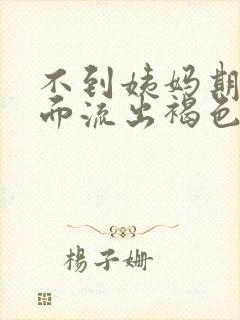 不到姨妈期
而流出褐色
楊子姗